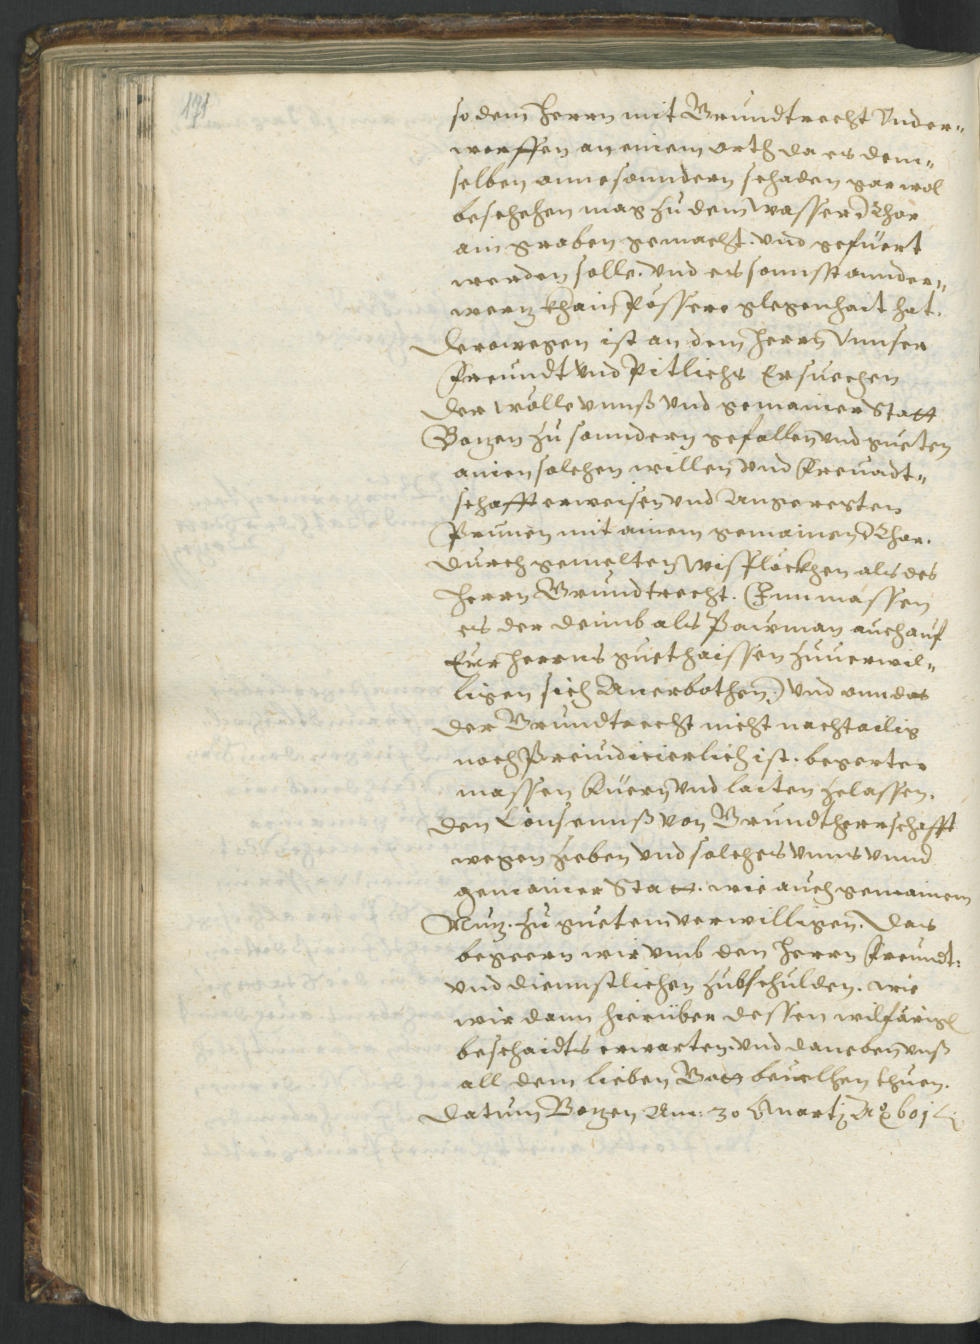 171
so dem herrn mit Grundtrecht Vnder„
worffen an einem orth da es dem„
selben onne sonndern schaden gar wol
beschehen mag zu dem Wasser Rhor
ain graben gemacht. vnd gefüert
werden solle. vnd es sonnst annder„
wertz khain pössere glegenhait hat.
Derowegen ist an dem herrn Vnnser
Freundt vnd Pitlichs Ersuechen
der wölle vnnß vnd gemainer Statt
Botzen zu sonndern gefallen vnd gueten
ainen solchen willen vnd Freundt„
schafft erweisen vnd Angeregten
Prunen mit ainem gemainen Rhor.
durch gemelten Wisfleckhen als des
herrn Grundtrecht. Innmassen
es der deinnb als Pawman auch auf
Eur herrns guethaissen zuuerwil„
ligen sich Anerbothen) vnd onn das
der Grundtrecht nicht nachtailig
noch Preiudicierlich ist. begerter
massen füern vnd laiten zelassen.
den Consennß von Grundtherrschafft
wegen geben vnd solches vnns vnnd
gemainer Statt. wie auch gemainem
Nutz. zu guetem verwilligen. Das
begeern wir vmb den herrn Freundt:
vnd dienstlichen zubschulden. wie
wir dann hierüber dessen wilfärigs
beschaidts erwarten vnd daneben vnß
all dem lieben Gott beuelhen thuen.
Datum Botzen Am: 30 Marty Aº 601